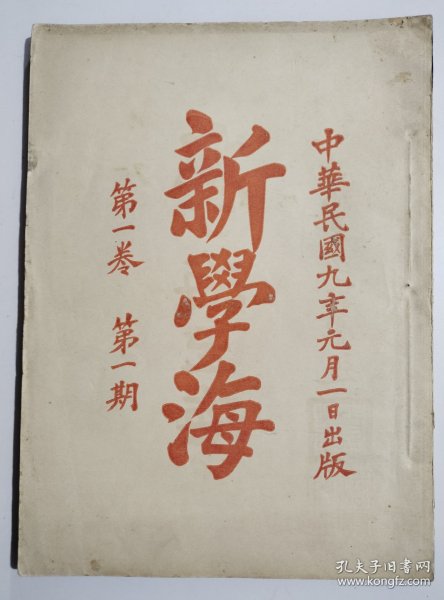 中華民國九年元月一日出版
新學海
第一卷 第一期
孔夫子旧书网
www.kongfz.com